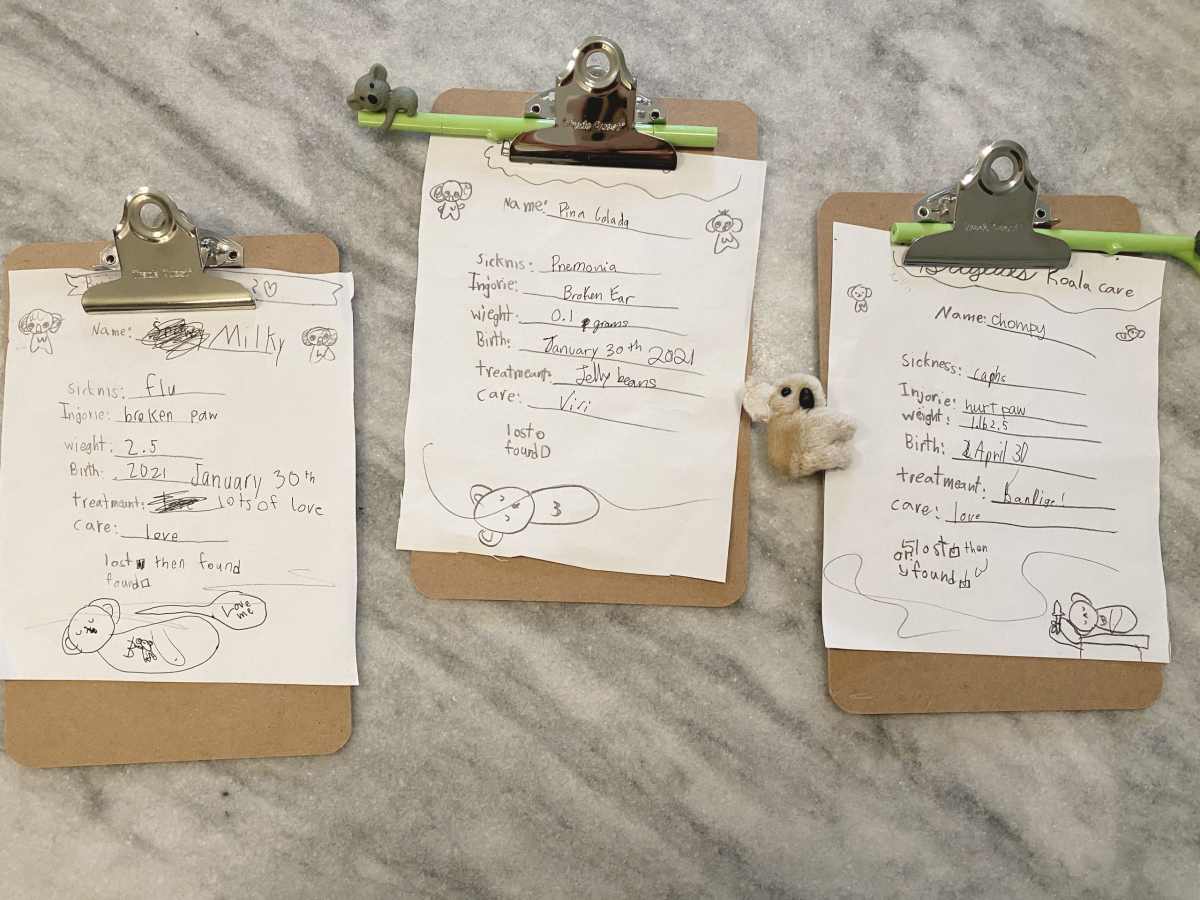 Name: Milky
sicknis: flu
Injorie: broken paw
wieght: 2.5
Birth: 2021 January 30th
treatmeant: lots of love
care: love
lost then found
found
Love me
Name: Pina Colada
sicknis: Pnemonia
Injorie: Broken Ear
wieght: 0.1 grams
Birth: January 30th 2021
treatmeant: Jelly beans
care: Vivi
lost
found
3
Koala care
Name: Chompy
Sickness:
Injorie: hurt paw
weight:
Birth: April 30
treatmeant:
care: love
or lost then
found